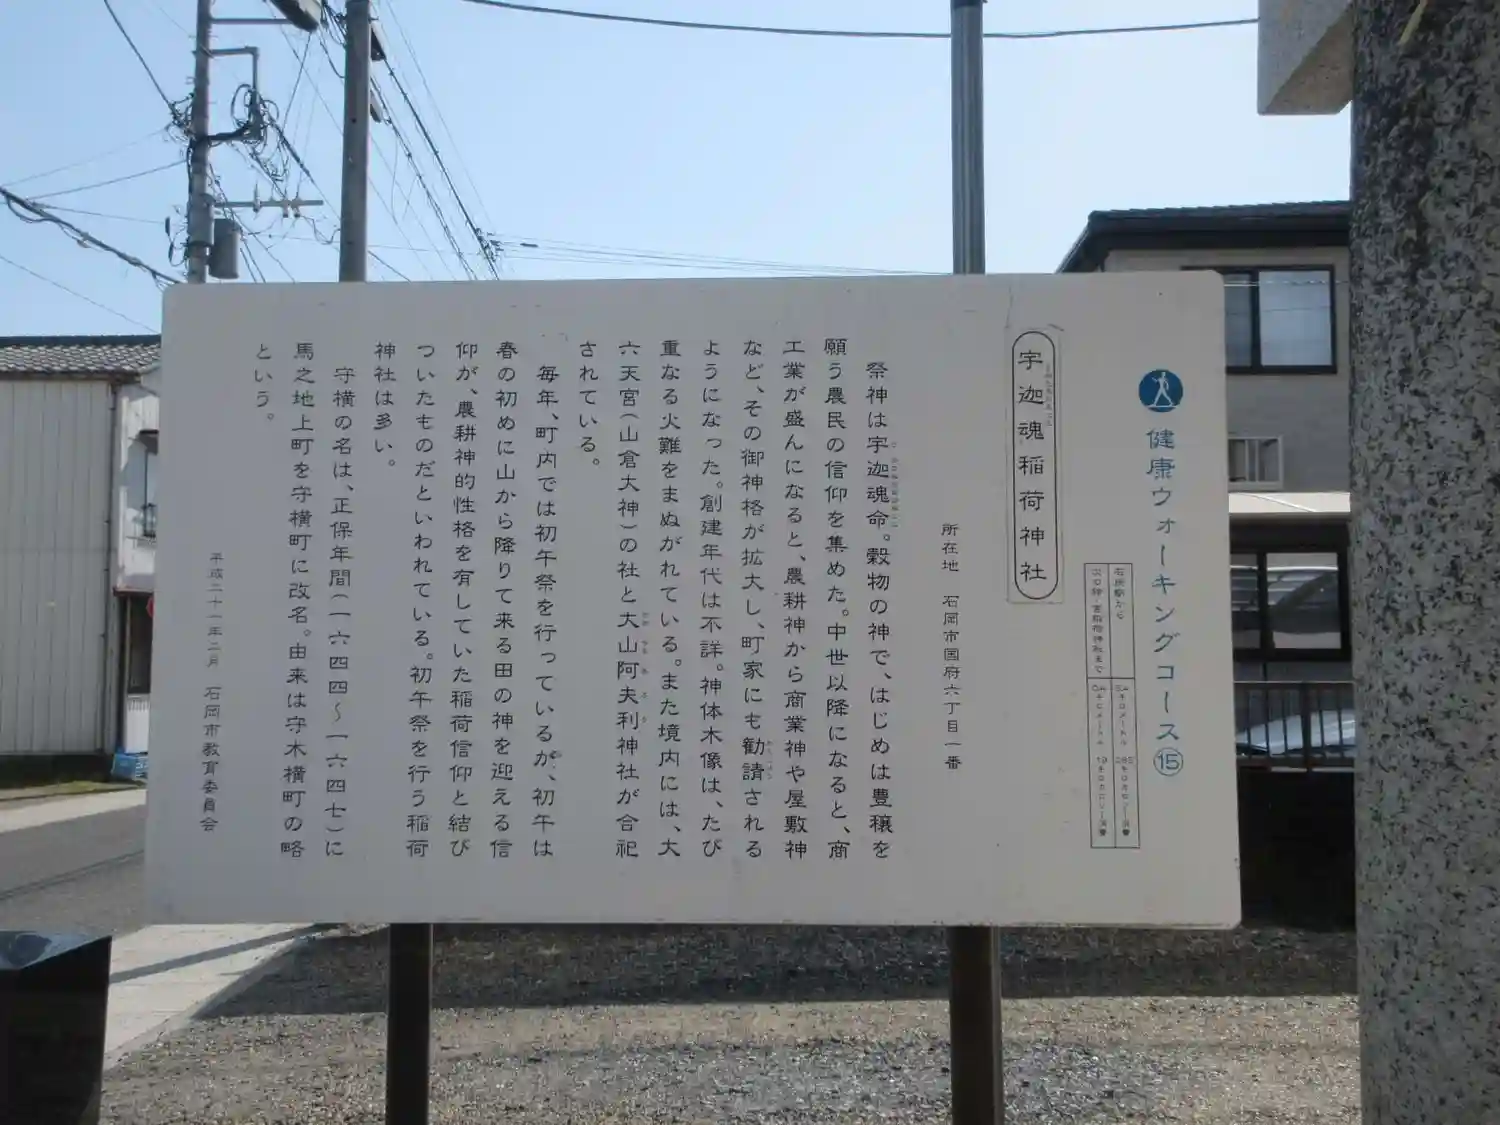 健康ウォーキングコース⑮
石岡駅から
宇迦魂稲荷神社
所在地　石岡市国府六丁目一番
祭神は宇迦魂命。穀物の神で、はじめは豊穣を
願う農民の信仰を集めた。中世以降になると、商
工業が盛んになると、農耕神から商業神や屋敷神
など、その御神格が拡大し、町家にも勧請される
ようになった。創建年代は不詳。神体木像は、たび
重なる火難をまぬがれている。また境内には、大
六天宮(山倉大神)の社と大山阿夫利神社が合祀
されている。
毎年、町内では初午祭を行っているが、初午は
春の初めに山から降りて来る田の神を迎える信
仰が、農耕神的性格を有していた稲荷信仰と結び
ついたものだといわれている。初午祭を行う稲荷
神社は多い。
守横の名は、正保年間(一六四四〜一六四七)に
馬之地上町を守横町に改名。由来は守木横町の略
という。
平成二十一年二月　石岡市教育委員会